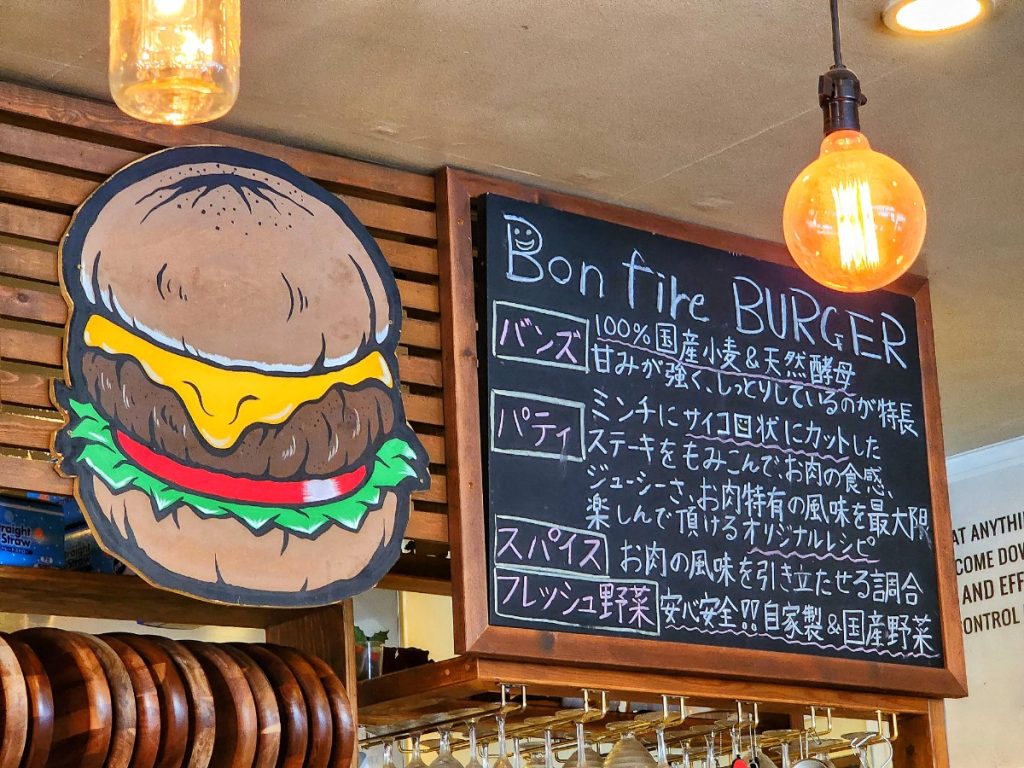 Bon fire BURGER
バンズ
100%国産小麦&天然酵母
甘みが強く、しっとりしているのが特長
パティ
ミンチにサイコロ状にカットした
ステーキをもみこんで、お肉の食感、
ジューシーさ、お肉特有の風味を最大限
楽しんで頂けるオリジナルレシピ
スパイス
お肉の風味を引き立たせる調合
フレッシュ野菜
安心安全!!自家製&国産野菜
raight
Straw
AT ANYTHI
COME DOW
AND EFF
CONTROL